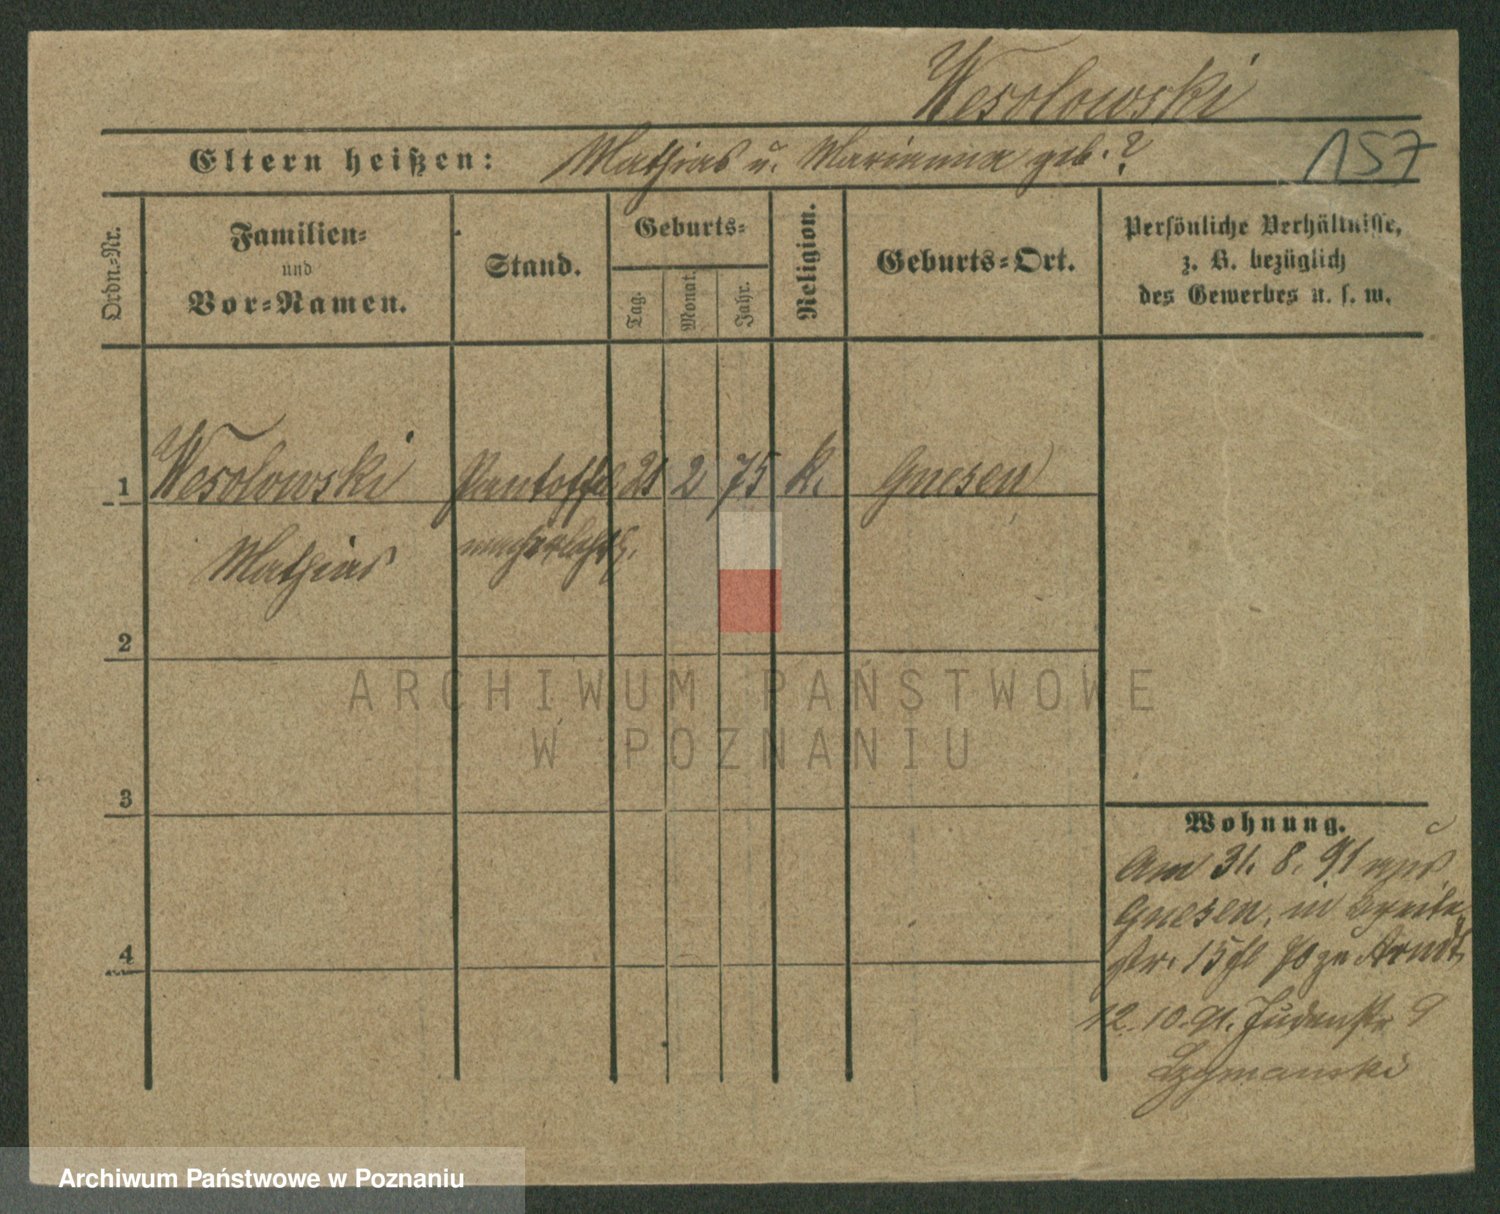 Wesolowski
Eltern heißen: Mathias u. Marianna geb. ?
157
Ordn.-Nr.
Familien-
und
Vor-Namen.
Stand.
Geburts-
Tag.
Monat.
Jahr.
Religion.
Geburts-Ort.
Persönliche Verhältnisse,
z. B. bezüglich
des Gewerbes u. s. w.
1 Wesolowski Pantoffel 21 2 75 K. Gnesen
Mathias
2
3
4
Wohnung.
Am 31. 8. 91 aus
Gnesen, in Breite
str. 15 zu Arndt
12. 10. 91. Judenstr 9
Szymanski
ARCHIWUM PAŃSTWOWE
W POZNANIU
Archiwum Państwowe w Poznaniu